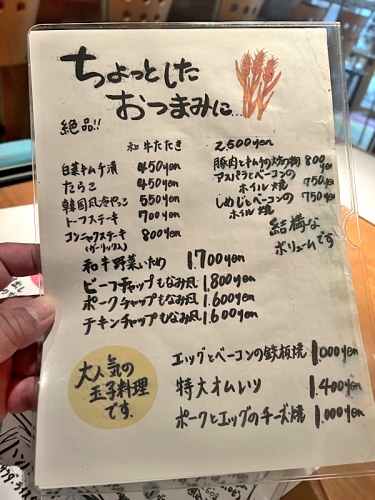 ちょっとした
おつまみに…
絶品!!
和牛たたき 2,500yen
白菜キムチ漬 450yen
たらこ 450yen
韓国風冷やっこ 550yen
トーフステーキ 700yen
コンニャクステーキ 800yen
(ガーリック入)
豚肉とキムチの炒め物 800yen
アスパラとベーコンの
ホイル焼 750yen
しめじとベーコンの 750yen
ホイル焼
結構な
ボリュームです
和牛野菜いため 1.700yen
ビーフチャップもなみ風 1.800yen
ポークチャップもなみ風 1.600yen
チキンチャップもなみ風 1.600yen
大人気の
玉子料理
です。
エッグとベーコンの鉄板焼 1.000yen
特大オムレツ 1.400yen
ポークとエッグのチーズ焼 1.000yen